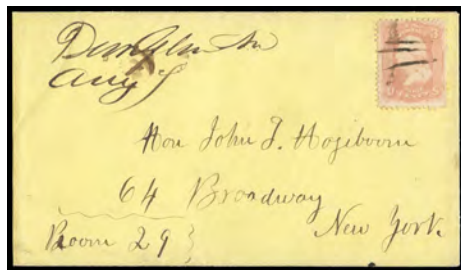 Aug 5
Hon John T. Hogiboom
64 Broadway
New York
Room 29